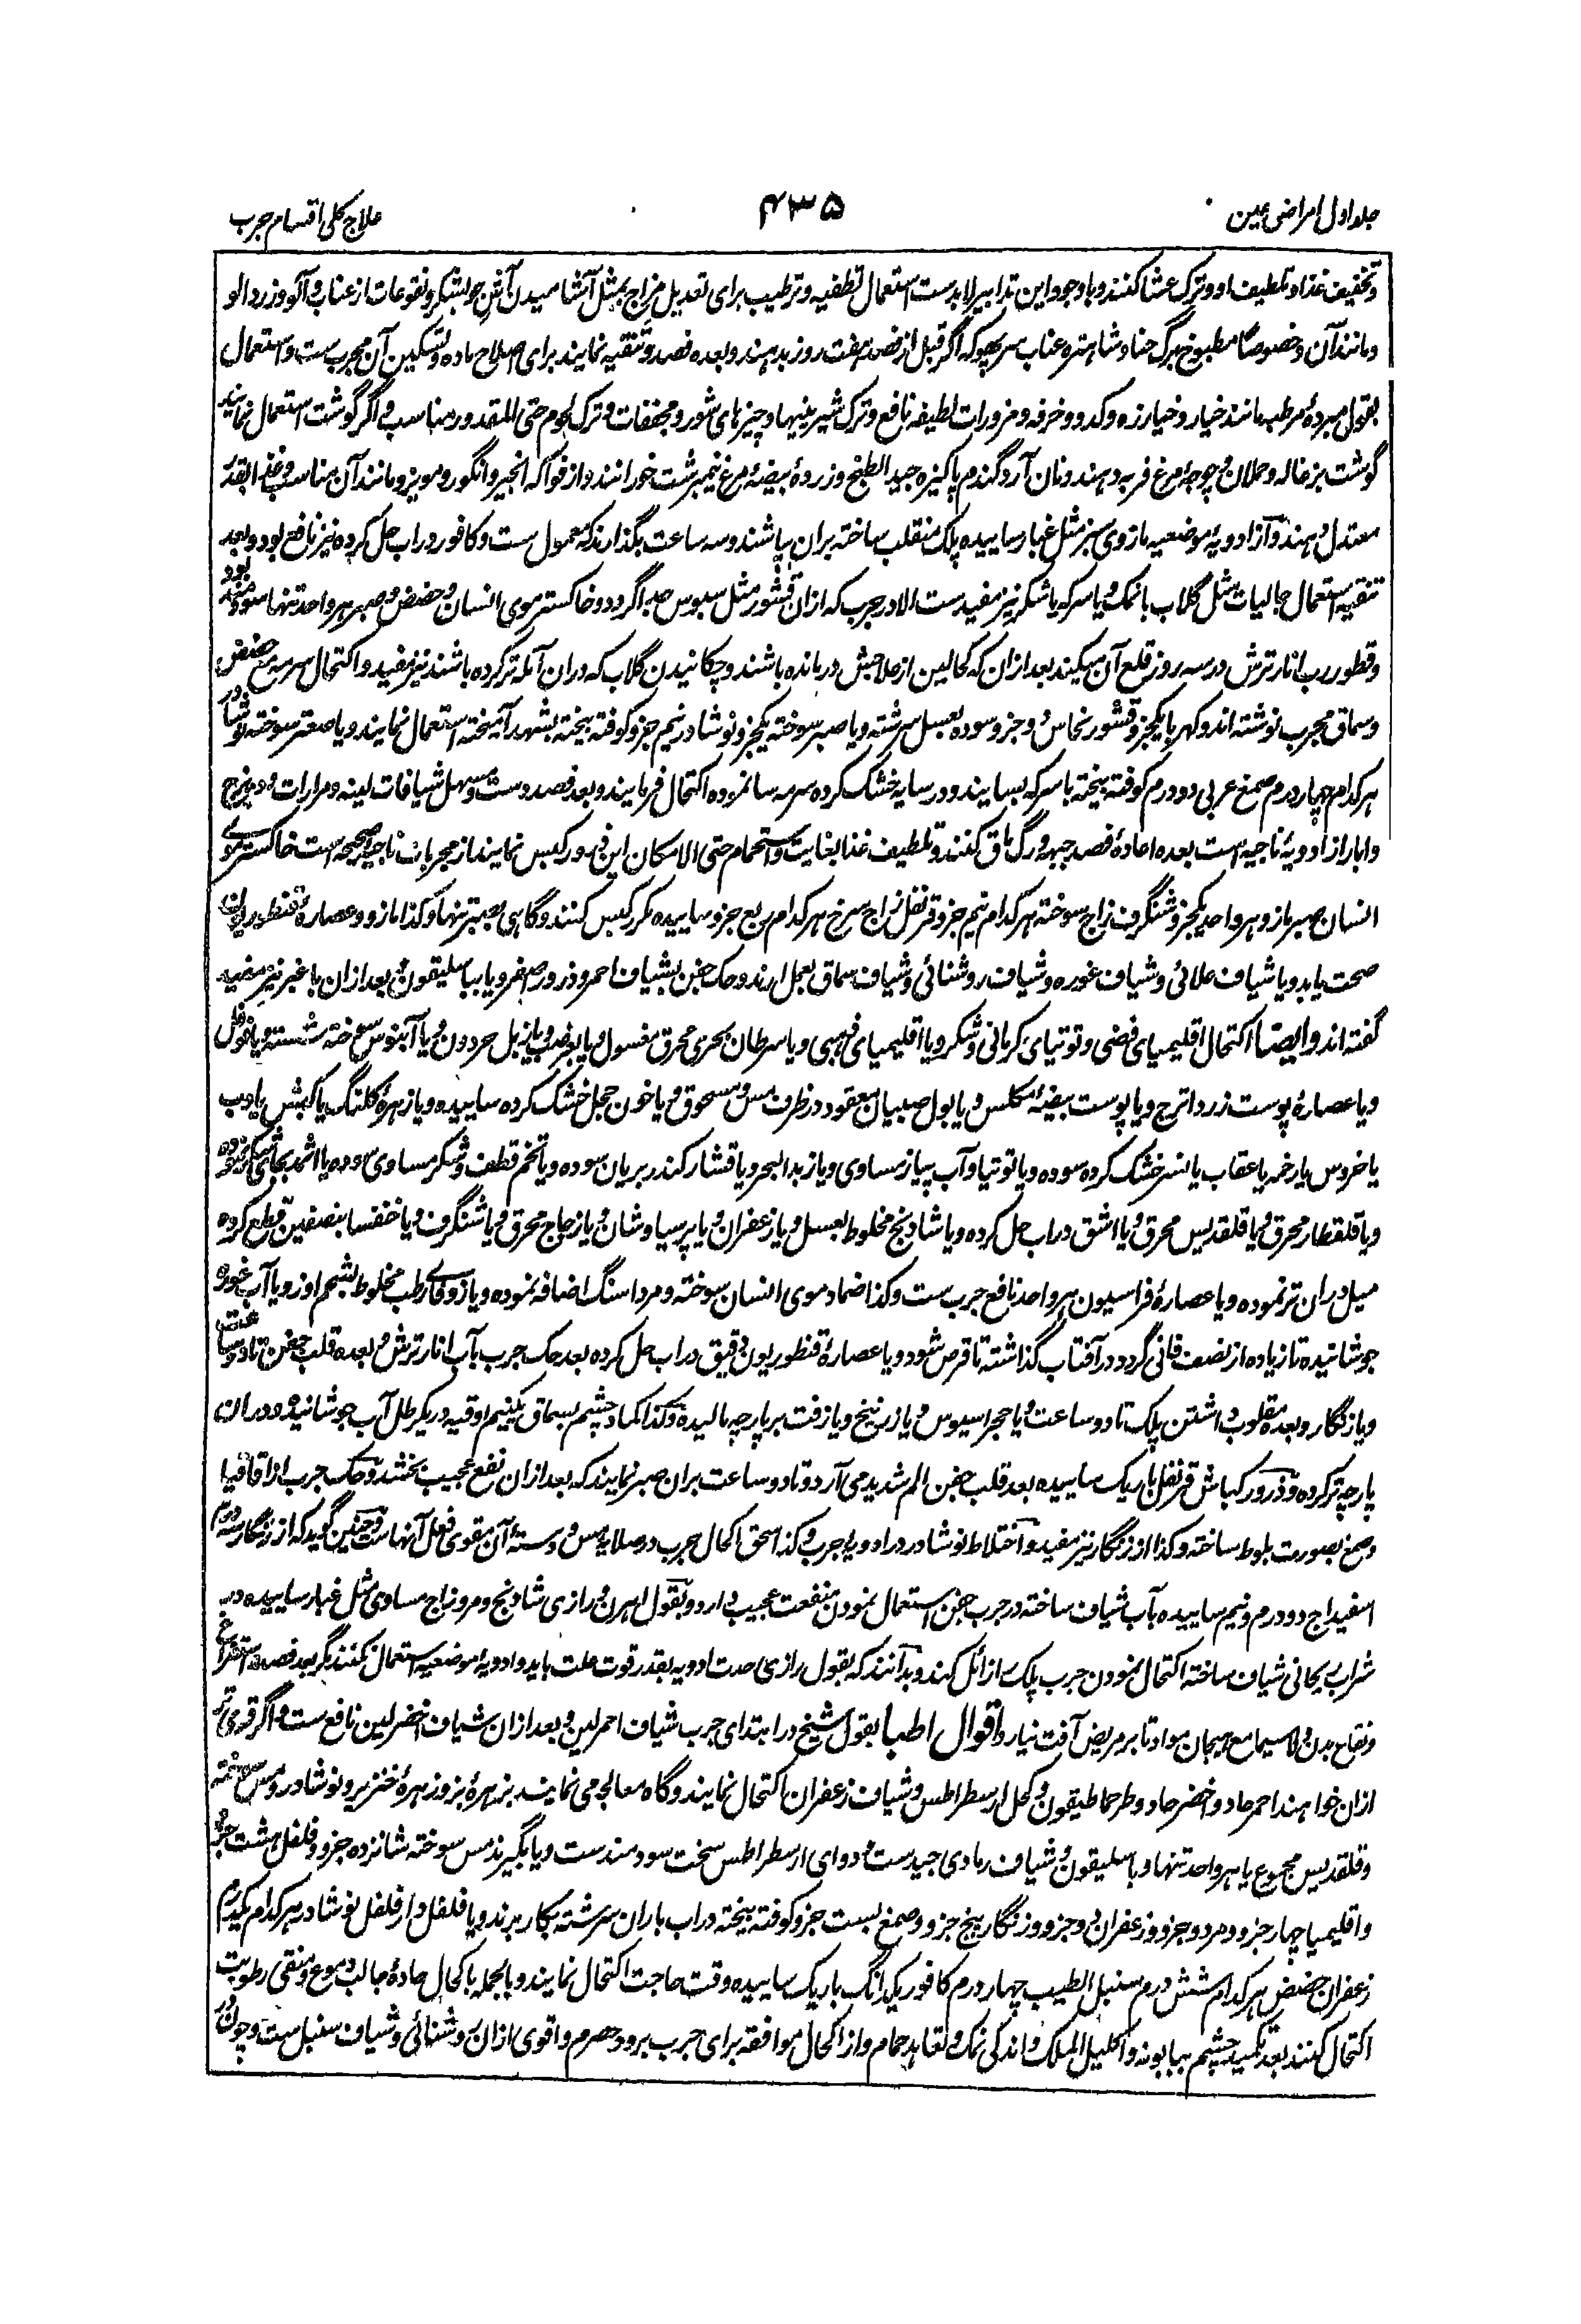 جلد اول امراض عین
۴۳۵
علاج کلی اقسام جرب
و تخفیف غذا و تلطیف او و ترک عشا کنند و با وجود این تدابیر لابدست استعمال تطفیه و ترطیب برای تعدیل مزاج بمثل آشامیدن آش جو بشکر و نقوعات از عناب و آلو و زردالو
و مانند آن و خصوصاً مطبوخ برگ حنا و شاهتره عناب سرپهوکه اگر قبل از فصد هفت روز بدهند و بعده فصد و تنقیه نمایند برای اصلاح ماده و تسکین آن مجرب ست و استعمال
بقول مبرده مرطب مانند خیار و خیارزه و کدو و خرفه و مزورات لطیفه نافع و ترک شیرینیها و چیزهای شور و مجففات و ترک لحوم حتی المقدور مناسب و اگر گوشت استعمال نمایند
گوشت بزغاله و حملان و چوجۀ مرغ فربه دهند و نان آرد گندم پاکیزه جید الطبخ و زردۀ بیضۀ مرغ نیمبرشت خورانند و از فواکه انجیر و انگور و مویز و مانند آن مناسب و غذا بقدر
معتدل دهند و از ادویۀ موضعیه مازوی سبز مثل غبار ساییده پلک منقلب ساخته بران پاشند و سه ساعت بگذارند که معمول ست و کافور دراب حل کرده نیز نافع بود و بعد
تنقیه استعمال جالیات مثل گلاب با نمک و یا سرکه یا شکر نیز مفیدست الا در جرب که ازان قشور مثل سبوس جدا گردد و خاکستر موی انسان و حضض و صبر هر واحد تنها سودمند بود
و قطور رب انار ترش در سه روز قلع آن میکند بعد ازان که کحالین از علاجش درمانده باشند و چکانیدن گلاب که دران آمله تر کرده باشند نیز مفید و اکتحال سرمه مع حضض
و سماق مجرب نوشته اند و کهربا یکجز و قشور نحاس دو جز و سوده بعسل سرشته و یا صبر سوخته یکجز و نوشادر نیم جز و کوفته بیخته بشهد آمیخته استعمال نمایند و یا صعتر سوخته نوشادر
هر کدام چهار درم صمغ عربی دو درم کوفته بیخته با سرکه بسایند و در سایه خشک کرده سرمه سا نموده اکتحال فرمایند و بعد فصد دست و مسهل شیافات لینه و مرارات و دیزج
و ابار از ادویۀ ناجیه است بعده اعادۀ فصد جبهه و رگ ماق کنند و تلطیف غذا بغایت و استحمام حتی الامکان این ذرور کبس نمایند از مجربات ناجیه صحیحه است خاکستر موی
انسان صبر مازو هر واحد یکجز و شنگرف زاج سوخته هر کدام نیم جز و قرنفل زاج سرخ هر کدام ربع جز و ساییده مکرر کبس کنند و گاهی بصبر تنها و کذا مازو و عصارۀ قنطوریون
صحت یابد و یا شیاف علائی و شیاف غوره و شیاف روشنائی و شیاف سماق بعمل ارند و حک جفن بشیاف احمر و ذرور اصفر و یا بباسلیقون و بعد ازان باغبر نیز مفید
گفته اند و ایضا اکتحال اقلیمیای فضی و توتیای کرمانی و شکر و یا اقلیمیای ذهبی و یا سرطان بحری محرق مغسول و یا بعرضب و یا زبل حردون و یا آبنوس سوخته شسته و یا فلفل
و یا عصارۀ پوست زرد اترج و یا پوست بیضۀ مکلس و یا بول صبیان معقود در ظرف مس و مسحوق و یا خون حجل خشک کرده ساییده و یا زهرۀ کلنگ یا کبش یا دب
یا خروس یا رخمه یا عقاب یا نسر خشک کرده سوده و یا توتیا و آب پیاز مساوی و یا زبد البحر و یا قشار کندر بریان سوده و یا تخم قطف و شکر مساوی سوده یا اثمد بجای شکر نموده
و یا قلقطار محرق و یا قلقدیس محرق و یا اشق دراب حل کرده و یا شادنج مخلوط بعسل و یا زعفران و یا پرسیاوشان و یا زجاج محرق و یا شنگرف و یا خنفسا بنصفین قطع کرده
میل دران تر نموده و یا عصارۀ فراسیون هر واحد نافع جرب ست و کذا ضماد موی انسان سوخته و مرداسنگ اضافه نموده و یا زوفای رطب مخلوط بشحم اوز و یا آب غوره
جوشانیده تا زیاده از نصف فانی گردد در آفتاب گذاشته تا قرص شود و یا عصارۀ قنطوریون دقیق دراب حل کرده بعد حک جرب بآب انار ترش و بعده قلب جفن تا دو ساعت
و یا زنگار و بعده مقلوب داشتن پلک تا دو ساعت و یا حجر اسیوس و یا زرنیخ و یا زفت بر پارچه مالیده و کذا کماد چشم بسماق یکنیم اوقیه در یک رطل آب جوشانیده دران
پارچه تر کرده و ذرور کباش قرنفل باریک ساییده بعد قلب جفن الم شدید می آرد و تا دو ساعت بران صبر نمایند که بعد ازان نفع عجیب بخشد و حک جرب از اقاقیا
و صمغ بصورت بلوط ساخته و کذا از زنگار نیز مفید و اختلاط نوشادر در ادویۀ جرب و کذا سحق اکحال جرب در صلایه مس و دستۀ آن مقوی فعل آنهاست و حنین گوید که از زنگار سه درم
اسفیداج دو درم و نیم ساییده بآب شیاف ساخته در جرب جفن استعمال نمودن منفعت عجیب دارد و بقول اهرن و رازی شادنج و مر و زاج مساوی مثل غبار ساییده در
شراب ریحانی شیاف ساخته اکتحال نمودن جرب پلک زائل کند و بدانند که بقول رازی حدت ادویه بقدر قوت علت باید و ادویۀ موضعیه استعمال نکنند مگر بعد فصد و استفراغ
و نقای بدن و لاسیما مع هیجان مواد تا بر مریض آفت نیارد اقوال اطبا بقول شیخ در ابتدای جرب شیاف احمر لین و بعد ازان شیاف اخضر لین نافع ست و اگر قوی تر
ازان خواهند احمر حاد و اخضر حاد و طرحماطیقون و کحل ارسطراطس و شیاف زعفران اکتحال نمایند و گاه معالجه می نمایند بزهرۀ بز و زهرۀ خنزیر و نوشادر و مس سوخته
و قلقدیس مجموع یا هر واحد تنها و باسلیقون و شیاف رمادی جیدست و دوای ارسطراطس سخت سودمندست و یا بگیرند مس سوخته شانزده جز و فلفل هشت جز
و اقلیمیا چهار جز و مر دو جز و زعفران دو جز و زنگار پنج جز و صمغ بست جز و کوفته بیخته دراب باران سرشته بکار برند و یا فلفل دارفلفل نوشادر هر کدام یکدرم
زعفران حضض هر کدام شش درم سنبل الطیب چهار درم کافور یکدانگ باریک ساییده وقت حاجت اکتحال نمایند و بالجمله باکحال حادۀ جالب دموع و منقی رطوبت
اکتحال کنند بعد تکمید چشم ببابونه و اکلیل الملک و اندکی نمک و تعاهد حمام و از اکحال موافقه برای جرب برود حصرم و اقوی ازان روشنائی و شیاف سنبل ست و چون